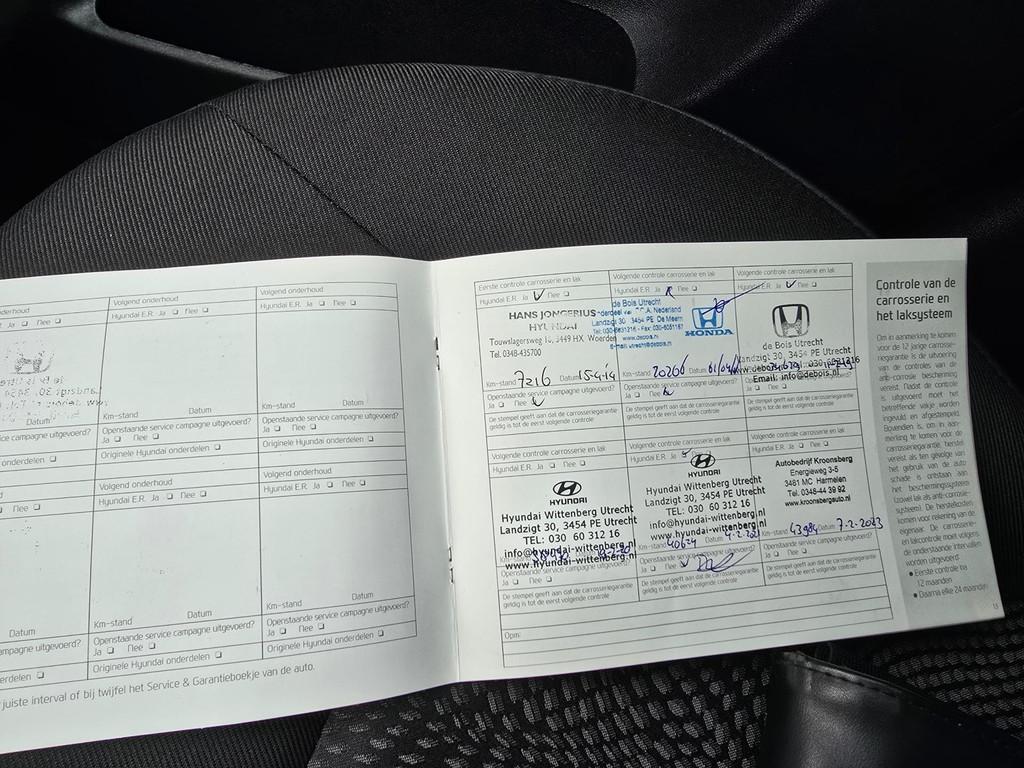 Volgend onderhoud
Volgend onderhoud
Hyundai E.R. Ja Nee
Hyundai E.R. Ja Nee
Ja Nee
Km-stand Datum
Km-stand Datum
Datum
Openstaande service campagne uitgevoerd?
Ja Nee
Openstaande service campagne uitgevoerd?
Ja Nee
Originele Hyundai onderdelen
Originele Hyundai onderdelen
Volgend onderhoud
Volgend onderhoud
Hyundai E.R. Ja Nee
Hyundai E.R. Ja Nee
Km-stand Datum
Km-stand Datum
Datum
Openstaande service campagne uitgevoerd?
Ja Nee
Openstaande service campagne uitgevoerd?
Ja Nee
Originele Hyundai onderdelen
Originele Hyundai onderdelen
juiste interval of bij twijfel het Service & Garantieboekje van de auto.
Eerste controle carrosserie en lak
Hyundai E.R. Ja Nee
HANS JONGERIUS
HYUNDAI
Touwslagersweg 3449 HX Woerden
Tel. 0348-435700
Km-stand 7216 Datum 15-4-14
Openstaande service campagne uitgevoerd?
Ja Nee
De stempel geeft aan dat de carrosseriegarantie
geldig is tot de eerst volgende controle
Volgende controle carrosserie en lak
Hyundai E.R. Ja Nee
de Bois Utrecht
Landzigt 30 3454 PE De Meern
www.debois.nl
HONDA
Km-stand 20206 Datum
Openstaande service campagne uitgevoerd?
Ja Nee
De stempel geeft aan dat de carrosseriegarantie
geldig is tot de eerst volgende controle
Volgende controle carrosserie en lak
Hyundai E.R. Ja Nee
de Bois Utrecht
Landzigt 30, 3454 PE Utrecht
Email: info@debois.nl
Openstaande service campagne uitgevoerd?
Ja Nee
De stempel geeft aan dat de carrosseriegarantie
geldig is tot de eerst volgende controle
Volgende controle carrosserie en lak
Hyundai E.R. Ja Nee
HYUNDAI
Hyundai Wittenberg Utrecht
Landzigt 30, 3454 PE Utrecht
TEL: 030 60 312 16
info@hyundai-wittenberg.nl
www.hyundai-wittenberg.nl
Openstaande service campagne uitgevoerd?
Ja Nee
De stempel geeft aan dat de carrosseriegarantie
geldig is tot de eerst volgende controle
Volgende controle carrosserie en lak
Hyundai E.R. Ja Nee
HYUNDAI
Hyundai Wittenberg Utrecht
Landzigt 30, 3454 PE Utrecht
TEL: 030 60 312 16
info@hyundai-wittenberg.nl
www.hyundai-wittenberg.nl
Km-stand 40624 Datum 4-2-2021
Openstaande service campagne uitgevoerd?
Ja Nee
De stempel geeft aan dat de carrosseriegarantie
geldig is tot de eerst volgende controle
Volgende controle carrosserie en lak
Hyundai E.R. Ja Nee
Autobedrijf Kroonsberg
Energieweg 3-5
3481 MC Harmelen
Tel. 0348-44 39 92
www.kroonsbergauto.nl
Km-stand 43984 Datum 7-2-2023
Openstaande service campagne uitgevoerd?
Ja Nee
De stempel geeft aan dat de carrosseriegarantie
geldig is tot de eerst volgende controle
Opm:
Controle van de
carrosserie en
het laksysteem
Om in aanmerking te komen
voor de 12 jarige carrosse-
riegarantie is de uitvoering
van de controles van de
anti-corrosie bescherming
vereist. Nadat de controle
is uitgevoerd moet het
betreffende vakje worden
ingevuld en afgestempeld.
Bovendien is, om in aan-
merking te komen voor de
carrosseriegarantie, herstel
vereist als ten gevolge van
het gebruik van de auto
schade is ontstaan aan
het beschermingssysteem
(zowel lak als anti-corrosie-
systeem). De herstelkosten
komen voor rekening van de
eigenaar. De carrosserie-
en lakcontrole moet volgens
de onderstaande intervallen
worden uitgevoerd:
• Eerste controle na
12 maanden
• Daarna elke 24 maanden
13